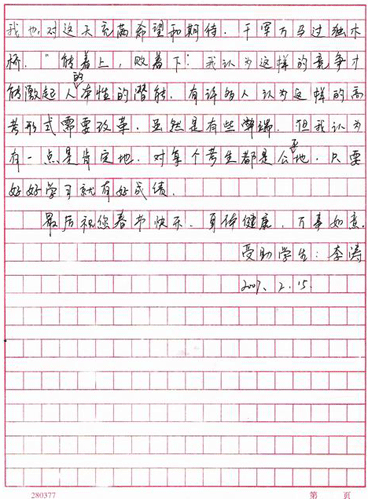 我也对这天充满希望和期待。千军万马过独木
桥。"能者上,败者下"我认为这样的竞争才
能激起人的本性的潜能。有许多人认为这样的高
考形式需要改革。虽然是有些弊端。但我认为
有一点是肯定地。对每个考生都是公平地。只要
好好学习就有好成绩。
最后祝您春节快乐。身体健康。万事如意。
受助学生:李涛
2007.2.15.
280377
第 页